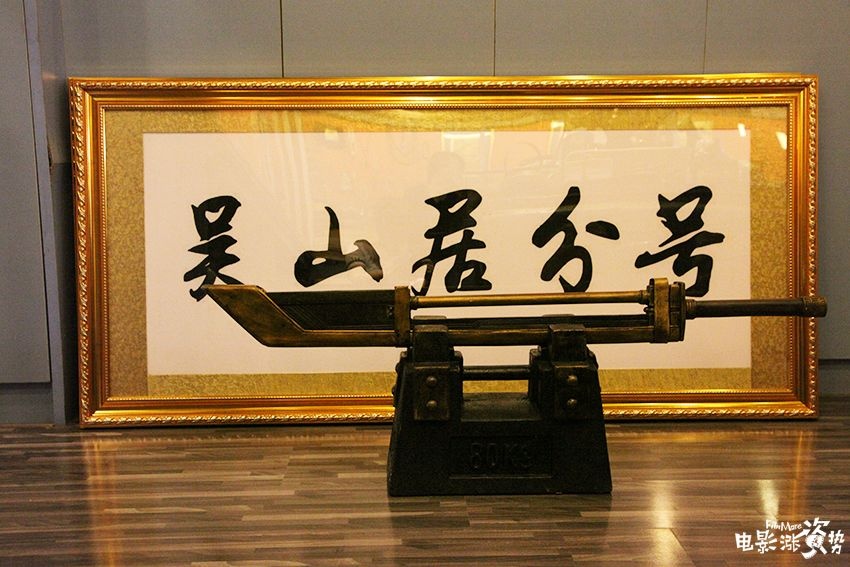 吴山居分号
80KG
FilmMore
电影涨资势